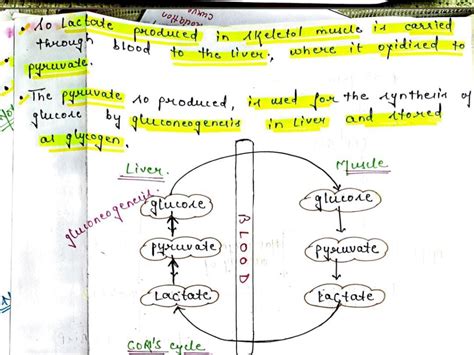 So Lactate produced in skeletol muscle is carried
through blood to the liver, where it oxidised to
pyruvate.
The pyruvate so produced, is used for the synthesis of
glucose by gluconeogenesis in liver and stored
as glycogen.
Liver
Muscle
gluconeogenesis
glucose
glucose
BLOOD
pyruvate
pyruvate
Lactate
Lactate
CORI'S cycle